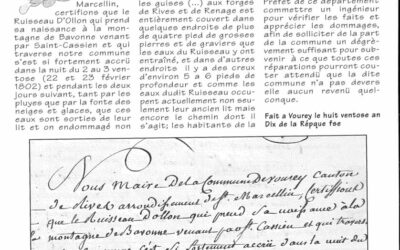 Marcellin,
certifions que le
Ruisseau D'Ollon qui prend
sa naissance à la mon-
tagne de Bavonne venant
par Saint-Cassien et qui
traverse notre commune
s'est si fortement accrû
dans la nuit du 2 au 3 ven-
tose (22 et 23 février
1802) et pendant les deux
jours suivant, tant par les
pluyes que par la fonte des
neiges et glaces, que ces
eaux sont sorties de leur
lit et on endommagé non
les guises (...) aux forges
de Rives et de Renage est
entièrement couvert dans
quelques endroits de plus
de quatre pied de grosses
pierres et de graviers que
les eaux du Ruisseau y ont
entraîné, et dans d'autres
endroits il y a des creux
d'environ 5 a 6 pieds de
profondeur et comme les
eaux dudit Ruisseau occu-
pent actuellement non seu-
lement leur ancien lit mais
encore le chemin dont il
s'agit; les habitants de la
Préfet de ce département
commettre un ingénieur
pour vérifier les faits et
apprécier les dommages,
afin de solliciter de la part
de la commune un dégrè-
vement suffisant pour sub-
venir à ce que toutes ces
réparations pourront cou-
ter attendû que la dite
commune n'a pas devers
elle aucun revenû quel-
conque.
Fait a Vourey le huit ventose an
Dix de la Répque fse
Nous Maire De la Commune de vourey canton
de Rives arrondissement de St. Marcellin, Certiffions
que le Ruisseau D'ollon qui prend sa naissance à la
montagne de Bavonne venant par St. Cassien et qui travers